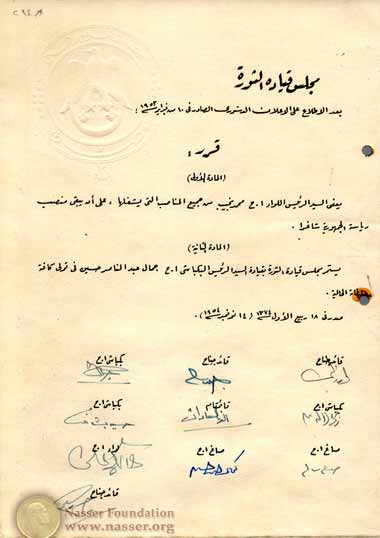 مجلس قيادة الثورة
بعد الاطلاع على الاعلان الدستورى الصادر فى ١٠ من فبراير ١٩٥٣ :
قرر :
(المادة الأولى)
يعفى السيد الرئيس اللواء ا.ح محمد نجيب من جميع المناصب التى يشغلها ، على أن يبقى منصب
رياسة الجمهورية شاغرا .
(المادة الثانية)
يستمر مجلس قيادة الثورة بقيادة السيد الرئيس البكباشى ا.ح جمال عبد الناصر حسين فى تولى كافة
الحالية .
صدر فى ١٨ ربيع الأول ١٣٧٤ (١٤ نوفمبر ١٩٥٤) .
قائد جناح قائد جناح بكباشى ا.ح
بكباشى ا.ح بكباشى ا.ح
صاغ ا.ح صاغ ا.ح ا.ح
قائد جناح
Nasser Foundation
www.nasser.org